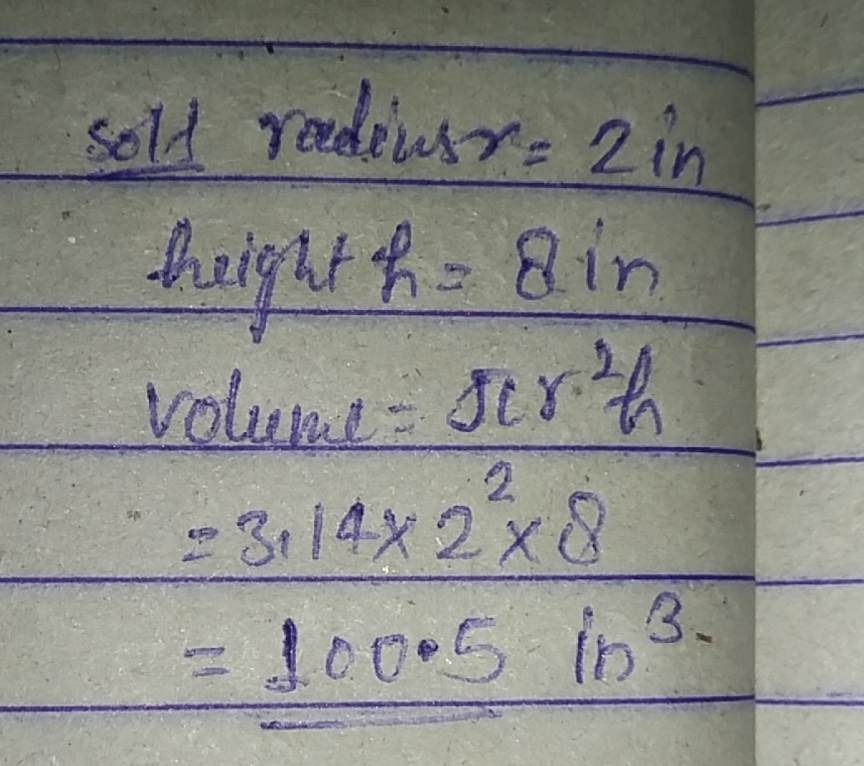 soln radius r = 2 in
height h = 8 in
volume = πr²h
= 3.14 × 2² × 8
= 100.5 in³